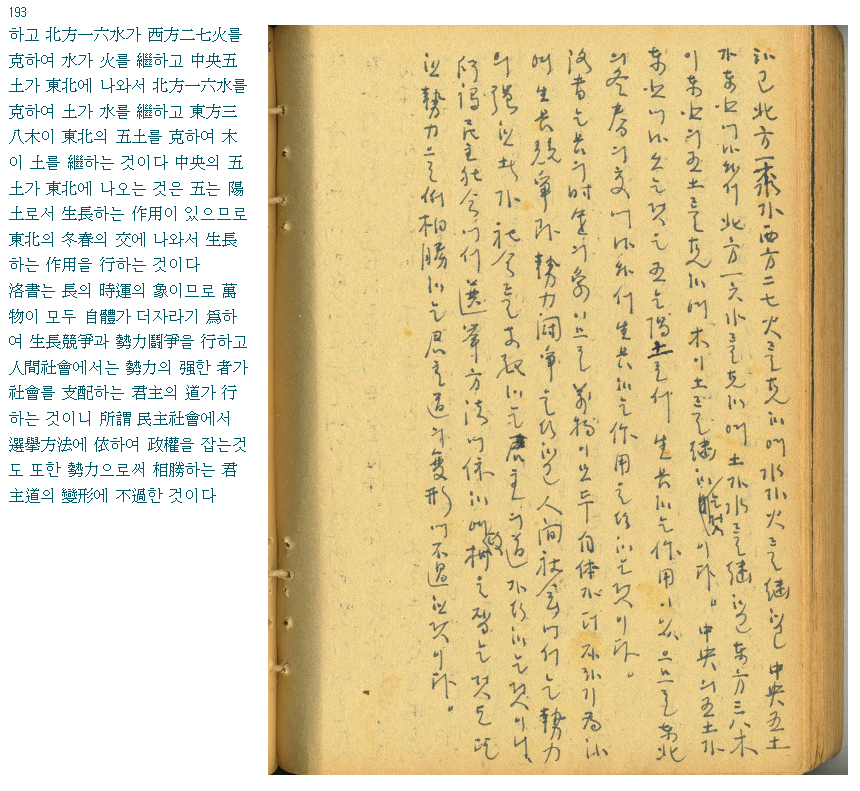 193
하고 北方一六水가 西方二七火를
克하여 水가 火를 繼하고 中央五
土가 東北에 나와서 北方一六水를
克하여 土가 水를 繼하고 東方三
八木이 東北의 五土를 克하여 木
이 土를 繼하는 것이다 中央의 五
土가 東北에 나오는 것은 五는 陽
土로서 生長하는 作用이 있으므로
東北의 冬春의 交에 나와서 生長
하는 作用을 行하는 것이다
洛書는 長의 時運의 象이므로 萬
物이 모두 自體가 더자라기 爲하
여 生長競爭과 勢力鬪爭을 行하고
人間社會에서는 勢力의 强한 者가
社會를 支配하는 君主의 道가 行
하는 것이니 所謂 民主社會에서
選擧方法에 依하여 政權을 잡는것
도 또한 勢力으로써 相勝하는 君
主道의 變形에 不過한 것이다
하고 北方一六水가 西方二七火를 克하여 水가 火를 繼하고 中央五土
가 東北에 나와서 北方一六水를 克하여 土가 水를 繼하고 東方三八木
이 東北의 五土를 克하여 木이 土를 繼하는것이다。中央의 五土가
東北에 나오는 것은 五는 陽土로서 生長하는 作用이 있으므로 東北
의 冬春의 交에 나와서 生長하는 作用을 行하는 것이다。
洛書는 長의 時運의 象이므로 萬物이 모두 自体가 더자라기 爲하
여 生長競爭과 勢力鬪爭을 行하고 人間社會에서는 勢力
의 强한 者가 社會를 支配하는 君主의 道가 行하는 것이니、
所謂 民主社會에서 選擧方法에 依하여 政權을 잡는 것도 또
한 勢力으로써 相勝하는 君主道의 變形에 不過한 것이다。